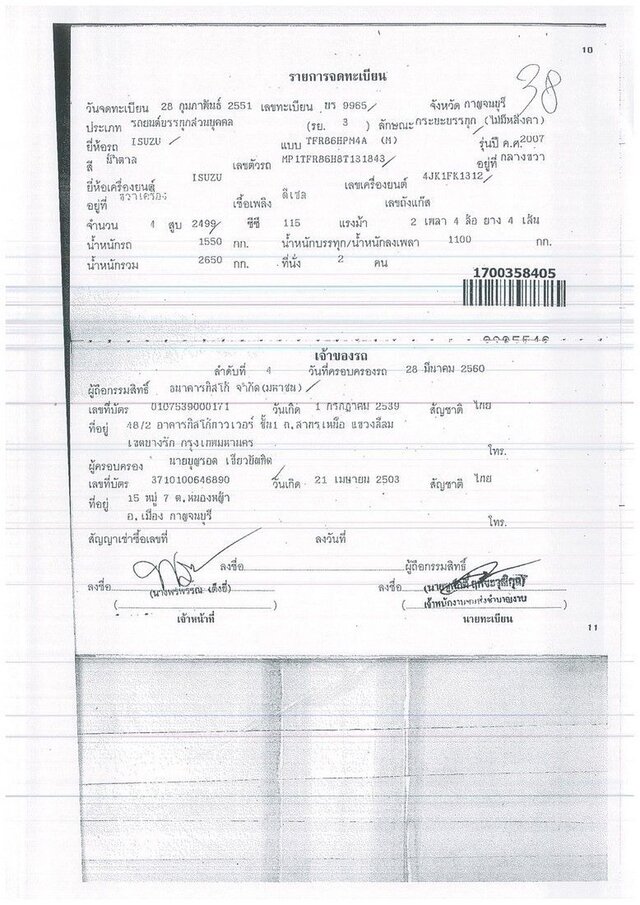 10
รายการจดทะเบียน
38
วันจดทะเบียน 28 กุมภาพันธ์ 2551 เลขทะเบียน บร 9965 จังหวัด กาญจนบุรี
ประเภท รถยนต์บรรทุกส่วนบุคคล (รย. 3 ) ลักษณะ กระบะบรรทุก (ไม่มีหลังคา)
ยี่ห้อรถ ISUZU แบบ TFR86HPM4A (M) รุ่นปี ค.ศ. 2007
สี น้ำตาล เลขตัวรถ MP1TFR86H8T131843 อยู่ที่ กลางขวา
ยี่ห้อเครื่องยนต์ ISUZU เลขเครื่องยนต์ 4JK1FK1312
อยู่ที่ ขวาเครื่อง เชื้อเพลิง ดีเซล เลขถังแก๊ส
จำนวน 4 สูบ 2499 ซีซี 115 แรงม้า 2 เพลา 4 ล้อ ยาง 4 เส้น
น้ำหนักรถ 1550 กก. น้ำหนักบรรทุก/น้ำหนักลงเพลา 1100 กก.
น้ำหนักรวม 2650 กก. ที่นั่ง 2 คน
1700358405
เจ้าของรถ
ลำดับที่ 4 วันที่ครอบครองรถ 28 มีนาคม 2560
ผู้ถือกรรมสิทธิ์ ธนาคารทิสโก้ จำกัด(มหาชน)
เลขที่บัตร 0107539000171 วันเกิด 1 กรกฎาคม 2539 สัญชาติ ไทย
ที่อยู่ 48/2 อาคารทิสโก้ทาวเวอร์ ชั้น1 ถ.สาทรเหนือ แขวงสีลม
เขตบางรัก กรุงเทพมหานคร
โทร.
ผู้ครอบครอง นายบุญรอด เขียวบัณฑิต
เลขที่บัตร 3710100646890 วันเกิด 21 เมษายน 2503 สัญชาติ ไทย
ที่อยู่ 15 หมู่ 7 ต.หนองหญ้า
อ.เมือง กาญจนบุรี
โทร.
สัญญาเช่าซื้อเลขที่ ลงวันที่
ลงชื่อ ผู้ถือกรรมสิทธิ์
ลงชื่อ ลงชื่อ
เจ้าพนักงานขนส่งชำนาญงาน
เจ้าหน้าที่ นายทะเบียน
11